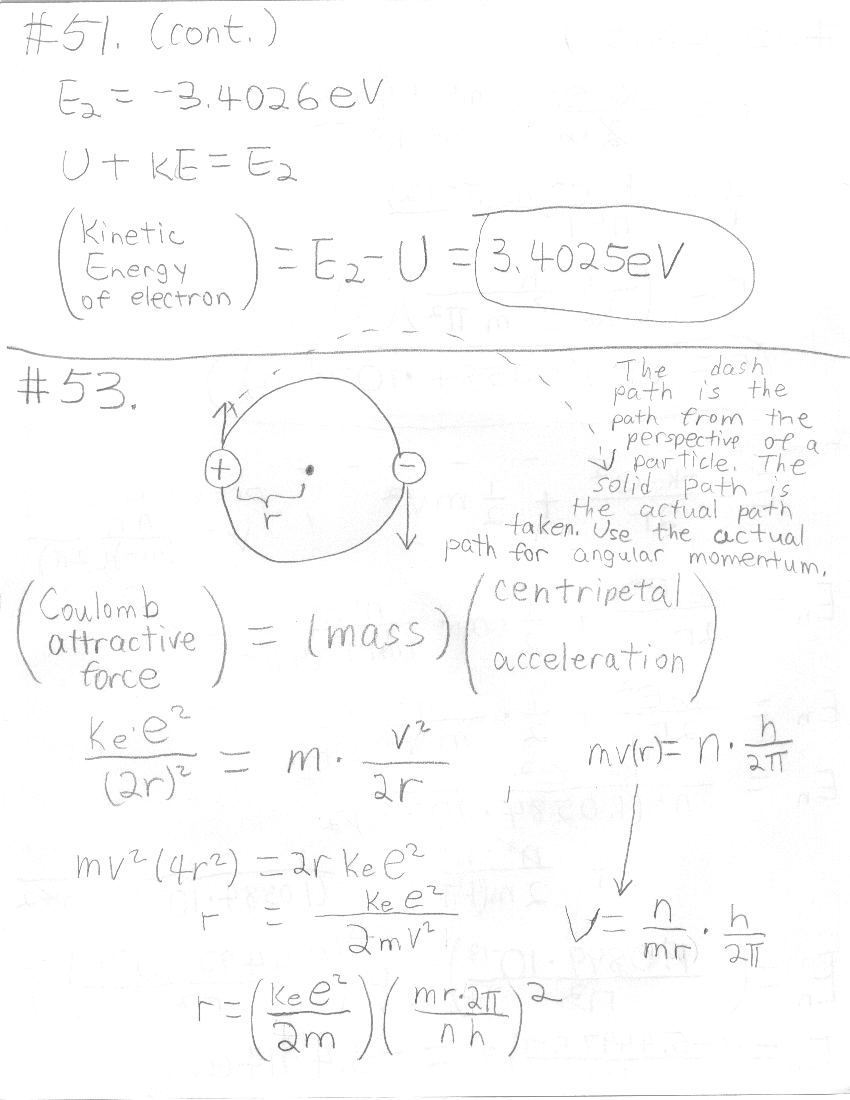 #51. (cont.)
E₂ = -3.4026eV
U + KE = E₂
(Kinetic Energy of electron) = E₂ - U = 3.4025eV
#53.
+ -
r
The dash
path is the
path from the
perspective of a
particle. The
solid path is
the actual path
taken. Use the actual
path for angular momentum.
(Coulomb attractive force) = (mass) (centripetal acceleration)
ke·e²/(2r)² = m · v²/2r
mv(r) = n · h/2π
mv²(4r²) = 2r ke e²
r = ke e²/2mv²
V = n/mr · h/2π
r = (ke e²/2m) (mr·2π/nh)²